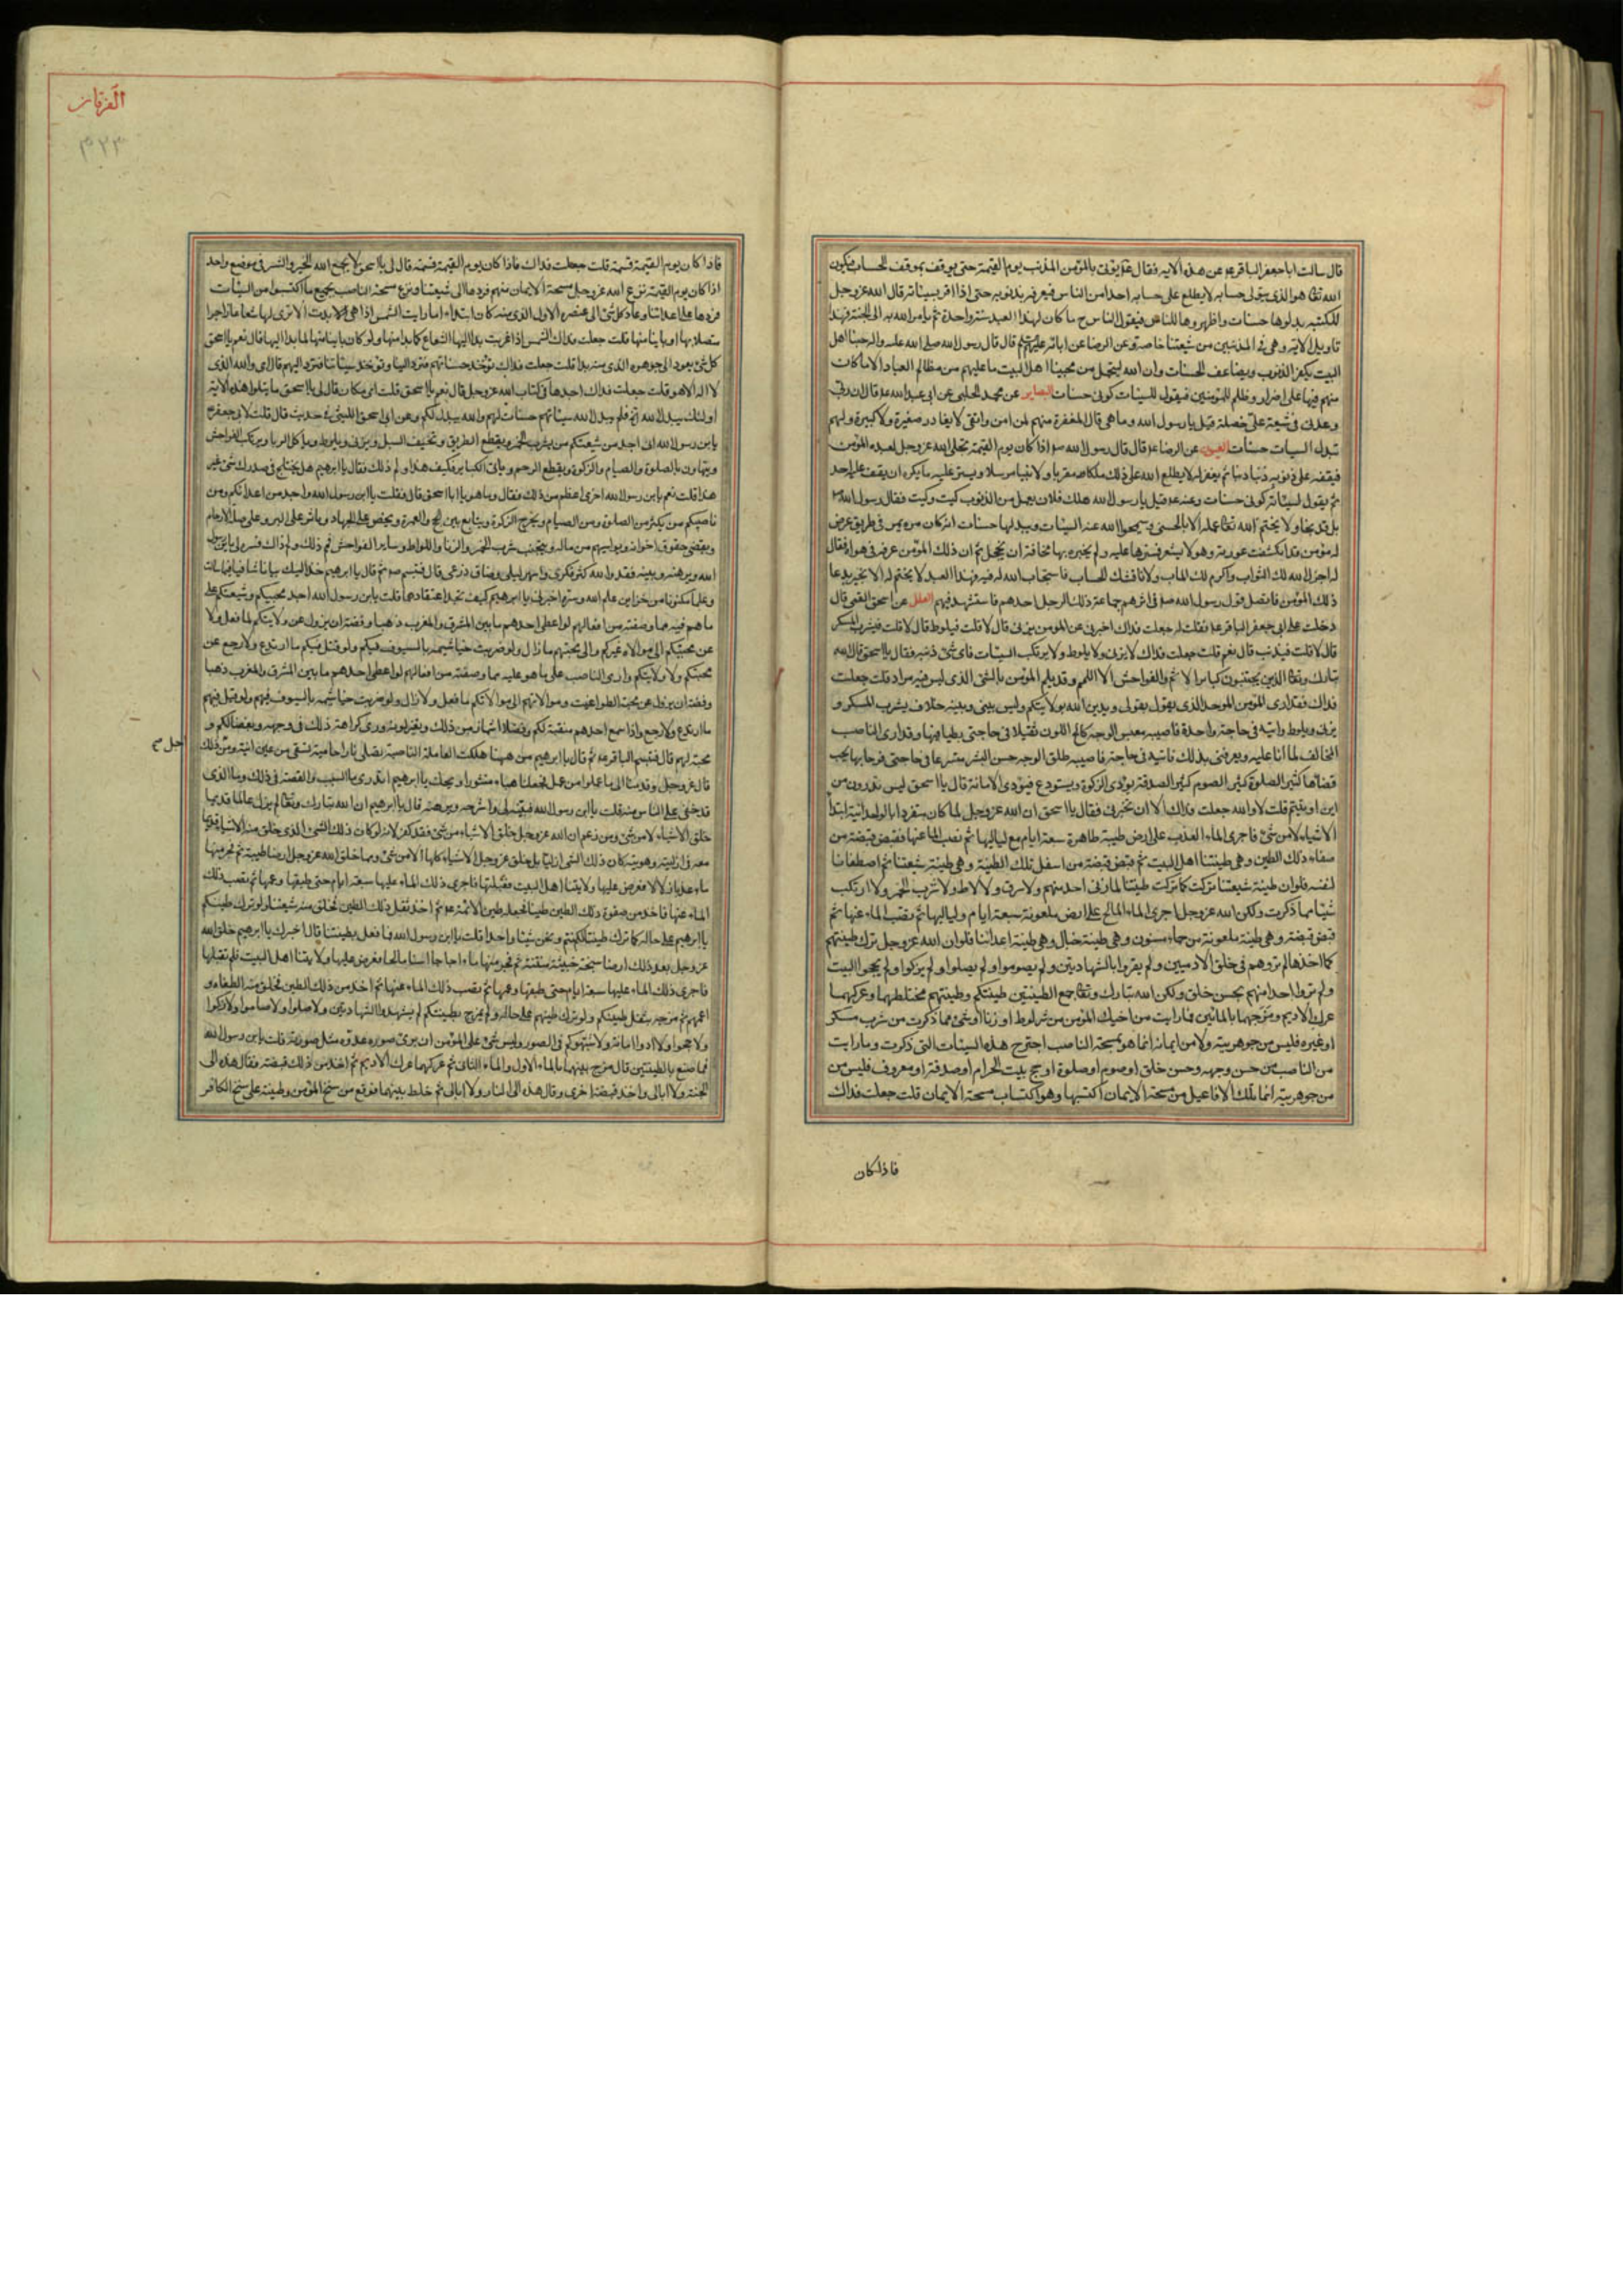 قال سالت ابا جعفر الباقر ع عن هذه الاية فقال ع يؤتى بالمؤمن المذنب يوم القيمة حتى يوقف بموقف الحساب فيكون
الله تعا هو الذى يتولى حسابه لا يطلع على حسابه احدا من الناس فيعرفه بذنوبه حتى اذا اقر بسيئاته قال الله عز وجل
للكتبة بدلوها حسنات واظهروها للناس فيقول الناس ح ما كان لهذا العبد سيئة واحدة ثم يامر الله به الى الجنة فهذا
تاويل الاية وهى فى المذنبين من شيعتنا خاصة وعن الرضا عن ابائه عليهم قال قال رسول الله صلى الله عليه واله حبنا اهل
البيت يكفر الذنوب ويضاعف الحسنات وان الله ليتحمل من محبينا اهل البيت ما عليهم من مظالم العباد الا ما كان
منهم فيها على اضرار وظلم للمؤمنين فيقول للسيئات كونى حسنات البصاير عن محمد الحلبى عن ابى عبد الله ع قال ان ربى
وعدنى فى شيعة على خصلة قيل يا رسول الله وما هى قال المغفرة منهم لمن امن واتقى لا يغادر صغيرة ولا كبيرة ولهم
تبدل السيات حسنات العيون عن الرضا ع قال قال رسول الله ص اذا كان يوم القيمة تجلى الله عز وجل لعبده المؤمن
فيقفه على ذنوبه ذنبا ذنبا ثم يغفر له لا يطلع الله على ذلك ملكا مقربا ولا نبيا مرسلا ويستر عليه ما يكره ان يقف عليه احد
ثم يقول لسيئاته كونى حسنات وعنه ع قيل يا رسول الله هلك فلان يعمل من الذنوب كيت وكيت فقال رسول الله
بل قد نجا ولا يختم الله تعا عمله الا بالحسنى وسيمحوا الله عنه السيئات ويبدلها حسنات انه كان مرة يمر فى طريق عرض
له مؤمن قد انكشفت عورته وهو لا يشعر فسترها عليه ولم يخبره بها مخافة ان يخجل ثم ان ذلك المؤمن عرفه فى هواء فقال
له اجزل الله لك الثواب واكرم لك الماب ولا ناقشك الحساب فاستجاب الله له فيه فهذا العبد لا يختم له الا بخير بدعا
ذلك المؤمن فاتصل قول رسول الله ص العلل عن اسحق القمى قال
دخلت على ابى جعفر الباقر ع فقلت له جعلت فداك اخبرنى عن المؤمن يزنى قال لا قلت فيلوط قال لا قلت فيشرب المسكر
قال لا قلت فيذنب قال نعم قلت جعلت فداك لا يزنى ولا يلوط ولا يرتكب السيئات فاى شىء ذنبه فقال يا اسحق قال الله
تبارك وتعا الذين يجتنبون كبائر الاثم والفواحش الا اللمم وقد يلم المؤمن بالشىء الذى ليس فيه مراد قلت جعلت
فداك
المخالف لما انا عليه ويعرفنى بذلك فاتيه فى حاجة فاصيبه طلق الوجه حسن البشر
قضاءها كثير الصلوة كثير الصوم كثير الصدقة يؤدى الزكوة ويستودع فيؤدى الامانة قال يا اسحق ليس تدرون من
اين اوتيتم قلت لا والله جعلت فداك الا ان تخبرنى فقال يا اسحق ان الله عز وجل لما كان متفردا بالوحدانية ابتدا
الاشياء لا من شىء فاجرى الماء العذب على ارض طيبة طاهرة سبعة ايام مع لياليها ثم نضب الماء عنها فقبض قبضة من
صفاء ذلك الطين وهى طينتنا اهل البيت ثم قبض قبضة من اسفل تلك الطينة وهى طينة شيعتنا ثم اصطفانا
لنفسه فلو ان طينة شيعتنا تركت كما تركت طينتنا لما زنى احد منهم ولا سرق ولا لاط ولا شرب الخمر ولا ارتكب
شيئا مما ذكرت ولكن الله عز وجل اجرى الماء المالح على ارض ملعونة سبعة ايام ولياليها ثم نضب الماء عنها ثم
قبض قبضة وهى طينة ملعونة من حماء مسنون وهى طينة خبال وهى طينة اعدائنا فلو ان الله عز وجل ترك طينتهم
كما اخذها لم تروهم فى خلق الادميين ولم يقروا بالشهادتين ولم يصوموا ولم يصلوا ولم يزكوا ولم يحجوا البيت
ولم تروا احدا منهم بحسن خلق ولكن الله تبارك وتعا جمع الطينتين طينتكم وطينتهم فخلطهما وعركهما
عرك الاديم ومزجهما بالمائين فما رايت من اخيك المؤمن من شر لواط او زنا او شىء مما ذكرت من شرب مسكر
او غيره فليس من جوهريته ولا من ايمانه انما هو بمسحة الناصب اجترح هذه السيئات التى ذكرت وما رايت
من الناصب من حسن وجهه وحسن خلق او صوم او صلوة او حج بيت الحرام او صدقة او معروف فليس من
من جوهريته انما تلك الافاعيل من مسحة الايمان اكتسبها وهو اكتساب مسحة الايمان قلت جعلت فداك
فاذا كان
الفرقان
٣٢٣
فاذا كان يوم القيمة فمه قلت جعلت فداك فاذا كان يوم القيمة فمه قال لى يا اسحق لا يجمع الله الخير والشر فى موضع واحد
اذا كان يوم القيمة نزع الله عز وجل مسحة الايمان منهم فردها الى شيعتنا ونزع مسحة الناصب بجميع ما اكتسبوا من السيئات
فردها على اعدائنا وعاد كل شىء الى عنصره الاول الذى منه كان ابتداء اما رايت الشمس اذا هى بدت الا ترى لها شعاعا زاجرا
متصلا بها او باينا منها قلت جعلت فداك الشمس اذا غربت بدا اليها الشعاع كما بدا منها ولو كان باينا منها لما بدا اليها قال نعم يا اسحق
كل شىء يعود الى جوهره الذى منه بدا قلت جعلت فداك تؤخذ حسناتهم فترد الينا وتؤخذ سيئاتنا فترد اليهم قال اى والله الذى
لا اله الا هو قلت جعلت فداك اجدها فى كتاب الله عز وجل قال نعم يا اسحق قلت اى مكان قال لى يا اسحق ما تتلوا هذه الاية
اولئك يبدل الله الخ فلم يبدل الله سيئاتهم حسنات الا لكم والله يبدل لكم وعن ابى اسحق الليثى فى حديث قال قلت لابى جعفر ع
يابن رسول الله انى اجد من شيعتكم من يشرب الخمر ويقطع الطريق ويخيف السبيل ويزنى ويلوط وياكل الربا ويرتكب الفواحش
ويتهاون بالصلوة والصيام والزكوة ويقطع الرحم وياتى الكبائر فكيف هذا ولم ذلك فقال يا ابرهيم هل يختلج فى صدرك شىء غير
هذا قلت نعم يابن رسول الله اخرى اعظم من ذلك فقال وما هو يا ابا اسحق قال فقلت يابن رسول الله واجد من اعدائكم ومن
ناصبكم من يكثر من الصلوة ومن الصيام ويخرج الزكوة ويتابع بين الحج والعمرة ويحض على الجهاد وياثر على البر وعلى صلة الارحام
ويقضى حقوق اخوانه ويواسيهم من ماله ويجتنب شرب الخمر والزنا واللواط وساير الفواحش فمم ذلك ولم ذاك فسره لى يابن رسول
الله وبرهنه وبينه فقد والله كثر فكرى واسهر ليلى وضاق ذرعى قال فتبسم ص ثم قال يا ابرهيم خذ اليك بيانا شافيا فيما سالت
وعلما مكنونا من خزاين علم الله وسره اخبرنى يا ابرهيم كيف تجد اعتقادهما قلت يابن رسول الله اجد محبيكم وشيعتكم على
ما هم فيه مما وصفته من افعالهم لو اعطى احدهم ما بين المشرق والمغرب ذهبا وفضة ان يزول عن ولايتكم لما فعل ولا
عن محبتكم الى موالاة غيركم والى محبتهم ما زال ولو ضربت خياشيمه بالسيوف فيكم ولو قتل فيكم ما ارتدع ولا رجع عن
محبتكم ولا ولايتكم وارى الناصب على ما هو عليه مما وصفته من افعالهم لو اعطى احدهم ما بين المشرق والمغرب ذهبا
وفضة ان يزول عن محبة الطواغيت وموالاتهم الى موالاتكم ما فعل ولا زال ولو ضربت خياشيمه بالسيوف فيهم ولو قتل فيهم
ما ارتدع ولا رجع واذا سمع احدهم منقبة لكم وفضلا اشمأز من ذلك وتغير لونه ورى كراهة ذلك فى وجهه وبغضا لكم و
محبة لهم قال فتبسم الباقر ع ثم قال يا ابرهيم من ههنا هلكت العاملة الناصبة تصلى نارا حامية تسقى من عين انية ومن ذلك
قال عز وجل وقدمنا الى ما عملوا من عمل فجعلناه هباء منثورا ويحك يا ابرهيم اتدرى ما السبب والقصة فى ذلك وما الذى
قد خفى على الناس منه قلت يا ابن رسول الله فبينه لى واشرحه وبرهنه قال يا ابرهيم ان الله تبارك وتعا لم يزل عالما قديما
خلق الاشياء لا من شىء ومن زعم ان الله عز وجل خلق الاشياء من شىء فقد كفر لانه لو كان ذلك الشىء الذى خلق منه الاشياء قديما
معه فى ازليته وهويته كان ذلك الشىء ازليا بل خلق عز وجل الاشياء كلها لا من شىء ومما خلق الله عز وجل ارضا طيبة ثم فجر منها
ماء عذبا زلالا فعرض عليها ولايتنا اهل البيت فقبلتها فاجرى ذلك الماء عليها سبعة ايام حتى طبقها وعمها ثم نضب ذلك
الماء عنها فاخذ من صفوة ذلك الطين طينا فجعله طين الائمة ع ثم اخذ ثفل ذلك الطين فخلق منه شيعتنا ولو ترك طينتكم
يا ابرهيم على حاله كما ترك طينتنا لكنتم ونحن شيئا واحدا قلت يا ابن رسول الله فما فعل بطينتنا قال اخبرك يا ابرهيم خلق الله
عز وجل بعد ذلك ارضا سبخة خبيثة منتنة ثم فجر منها ماء اجاجا اسنا مالحا فعرض عليها ولايتنا اهل البيت فلم تقبلها
فاجرى ذلك الماء عليها سبعة ايام حتى طبقها وعمها ثم نضب ذلك الماء عنها ثم اخذ من ذلك الطين فخلق منه الطغاة و
ائمتهم ثم مزجه بثفل طينتكم ولو ترك طينتهم على حاله ولم يمزج بطينتكم لم يشهدوا الشهادتين ولا صلوا ولا صاموا ولا زكوا
ولا حجوا ولا ادوا امانة ولا اشبهوكم فى الصور وليس شىء على المؤمن ان يرى صورة عدوه مثل صورته قلت يابن رسول الله
فما صنع بالطينتين قال مزج بينهما بالماء الاول والماء الثانى ثم عركهما عرك الاديم ثم اخذ من ذلك قبضة وقال هذه الى
الجنة ولا ابالى واخذ قبضة اخرى وقال هذه الى النار ولا ابالى ثم خلط بينهما فوقع من سنخ المؤمن وطينته على سنخ الكافر